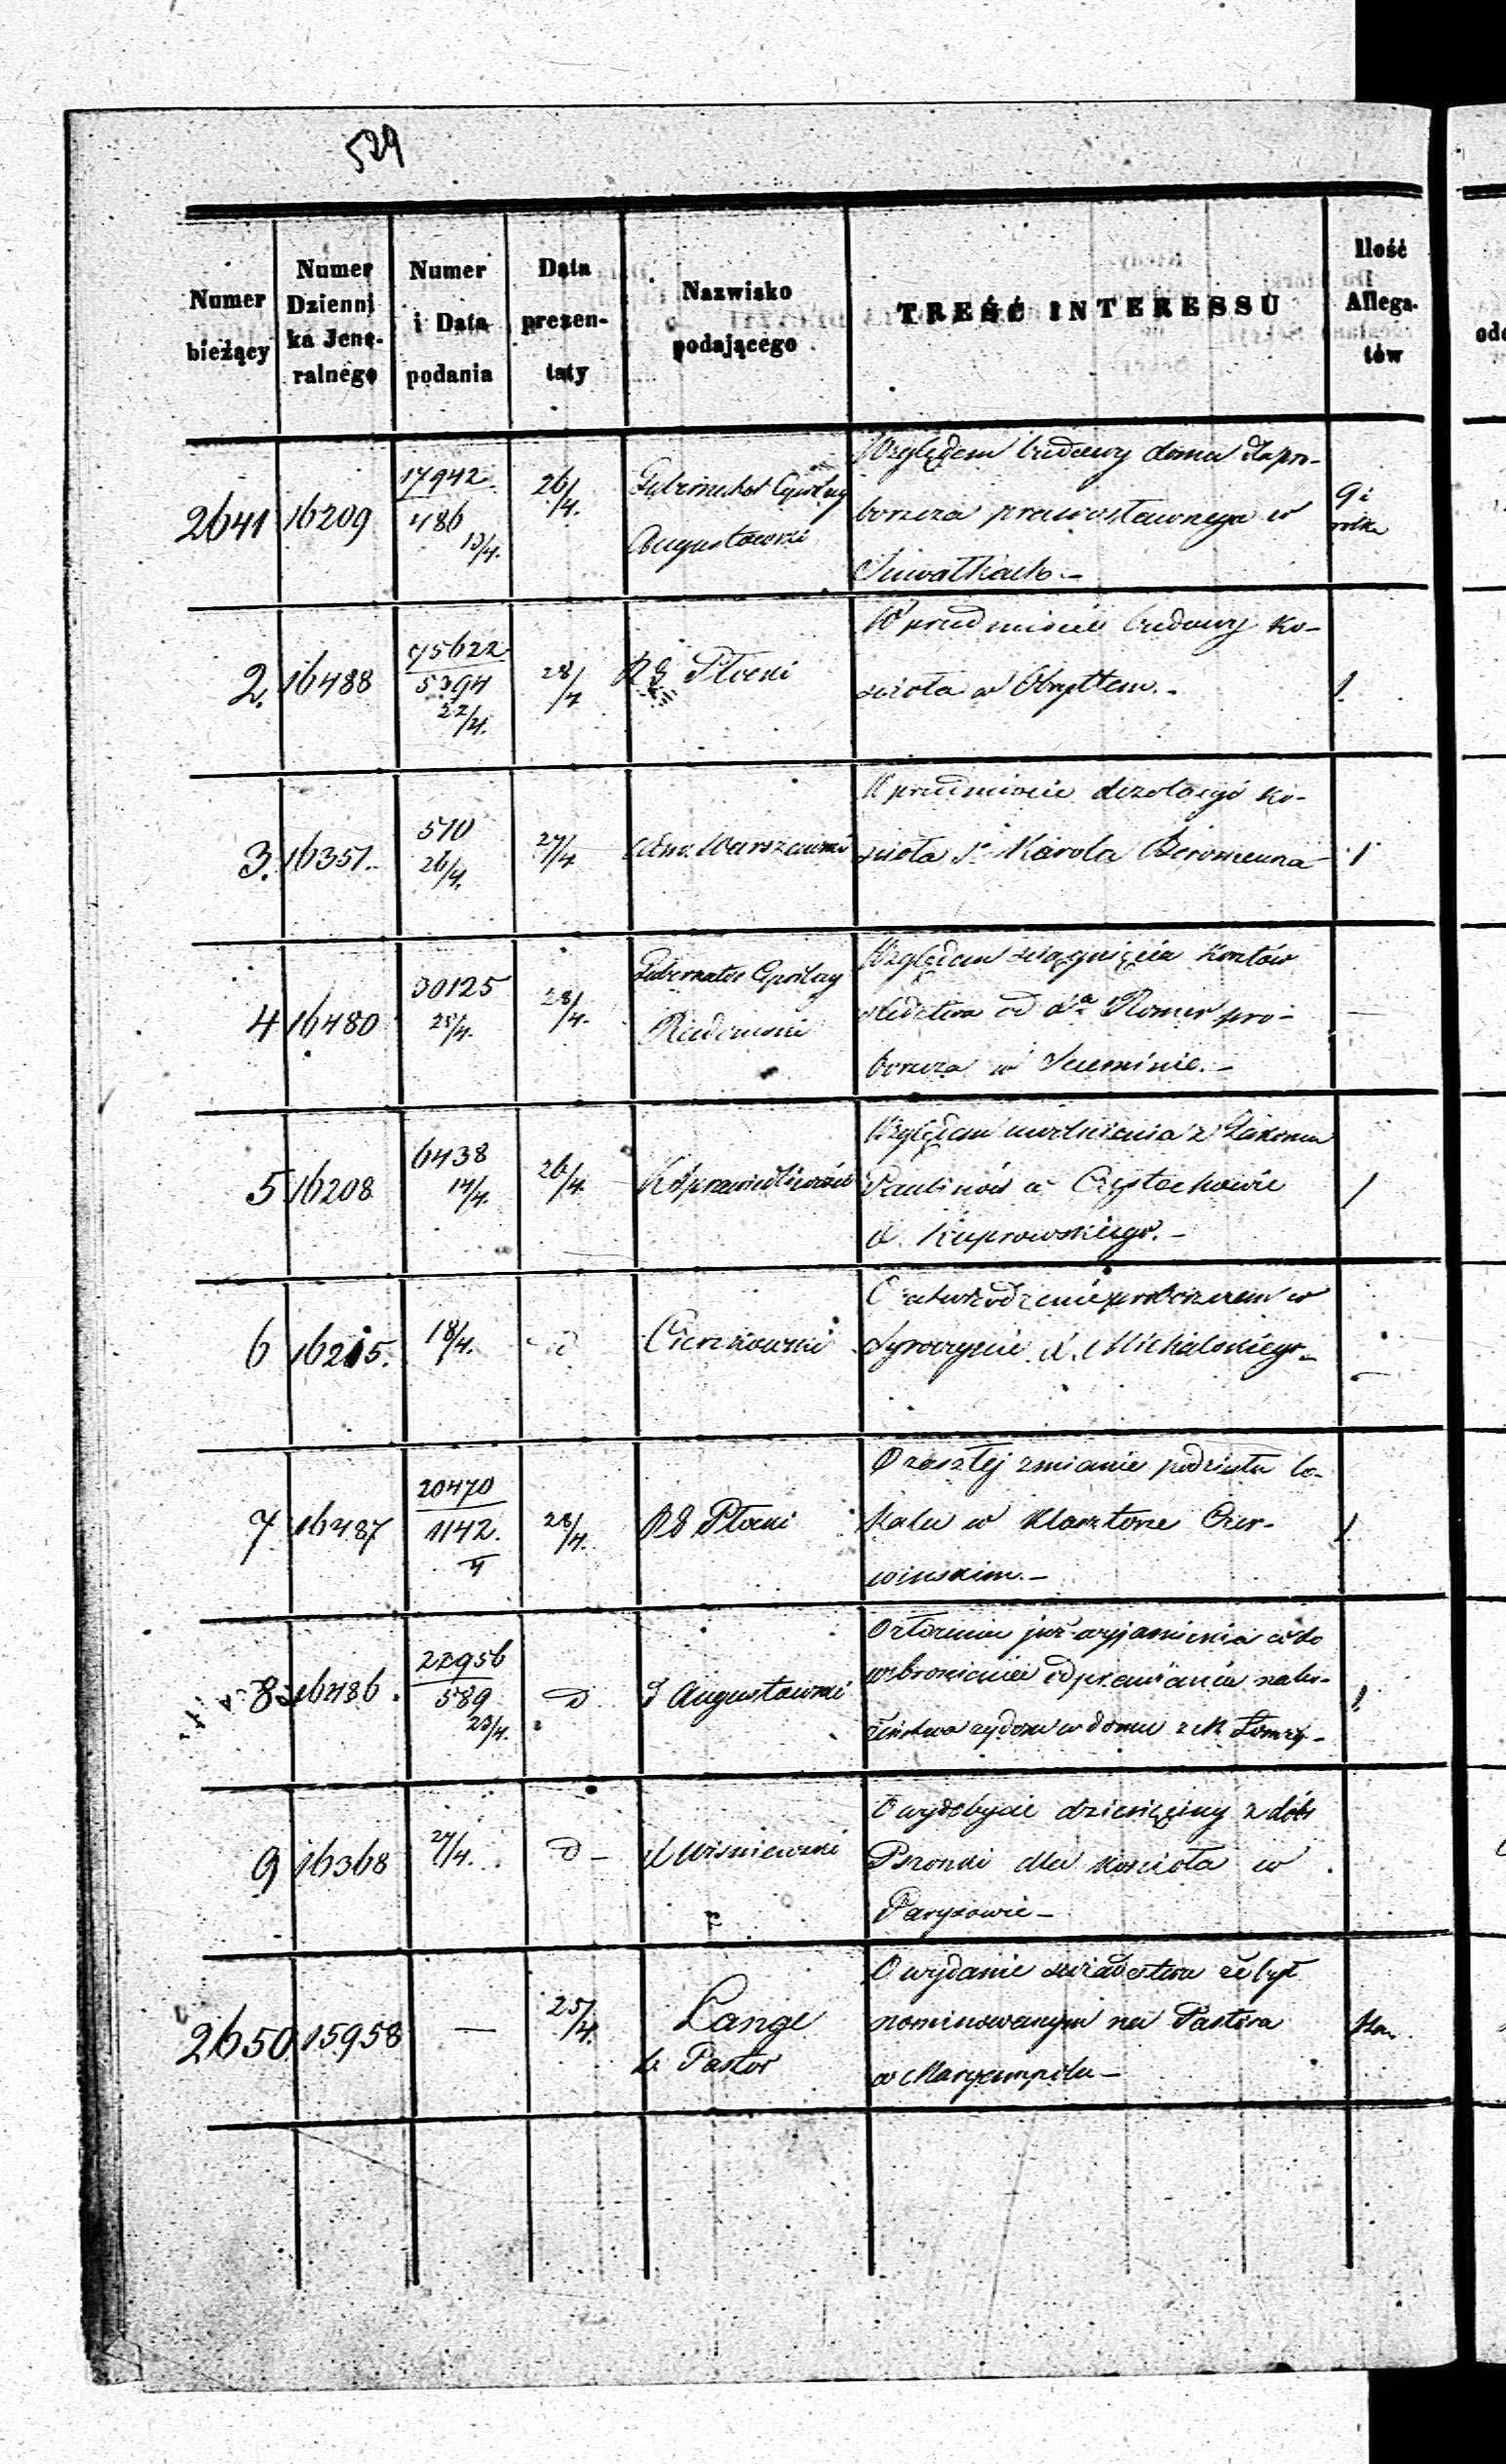 529
Numer bieżący
Numer Dziennika Jeneralnego
Numer i Data podania
Data prezentaty
Nazwisko podającego
TREŚĆ INTERESSU
Ilość Allegatów
2641 16209 17942 486 13/4. 26/4. Gubernator Cywilny Augustowski
Względem budowy domu dla pro-
boszcza prawosławnego w
Suwałkach.-
9 i
2. 16488 75622 5394 22/4. 28/4 RG Płocki
W przedmiocie budowy ko-
ścioła w Obryttem.-
1.
3. 16351. 510 26/4. 27/4 Warszawski
W przedmiocie dezolacyi ko-
ścioła Sº Karola Boromeusza
1
4 16480 30125 25/4. 28/4. Gubernator Cywilny Radomski
Względem ściągnięcia kosztów
śledztwa od Xa Romer pro-
boszcza w
—
5 16208 6438 14/4. 26/4. K Sprawiedliwości
Względem uwolnienia z Zakonu
Paulinów w Częstochowie
X. Kuprowskiego.-
1
6 16215. 18/4. D Cierzkowski
O zatwierdzenie proboszczem w
X. Michalskiego-
—
7 16487 20470 1142. 4 28/4. RG Płocki
O zaszłej zmianie podziału lo-
kalu w Klasztorze Czer-
wińskim.-
1.
8 16486. 22956 589 23/4. D G Augustowski
O złożeniu już wyjaśnienia co do
wzbronienia odprawiania nabo-
żeństwa żydom w domu z M. Łomży-
1.
9 16368 27/4. D - X Wiśniewski
O wydobycie dziesięciny z dóbr
Pszonki dla kościoła w
Parysowie-
2650 15958 — 25/4. Lange
b. Pastor
O wydanie świadectwa że był
nominowanym na Pastora
w Maryampolu-